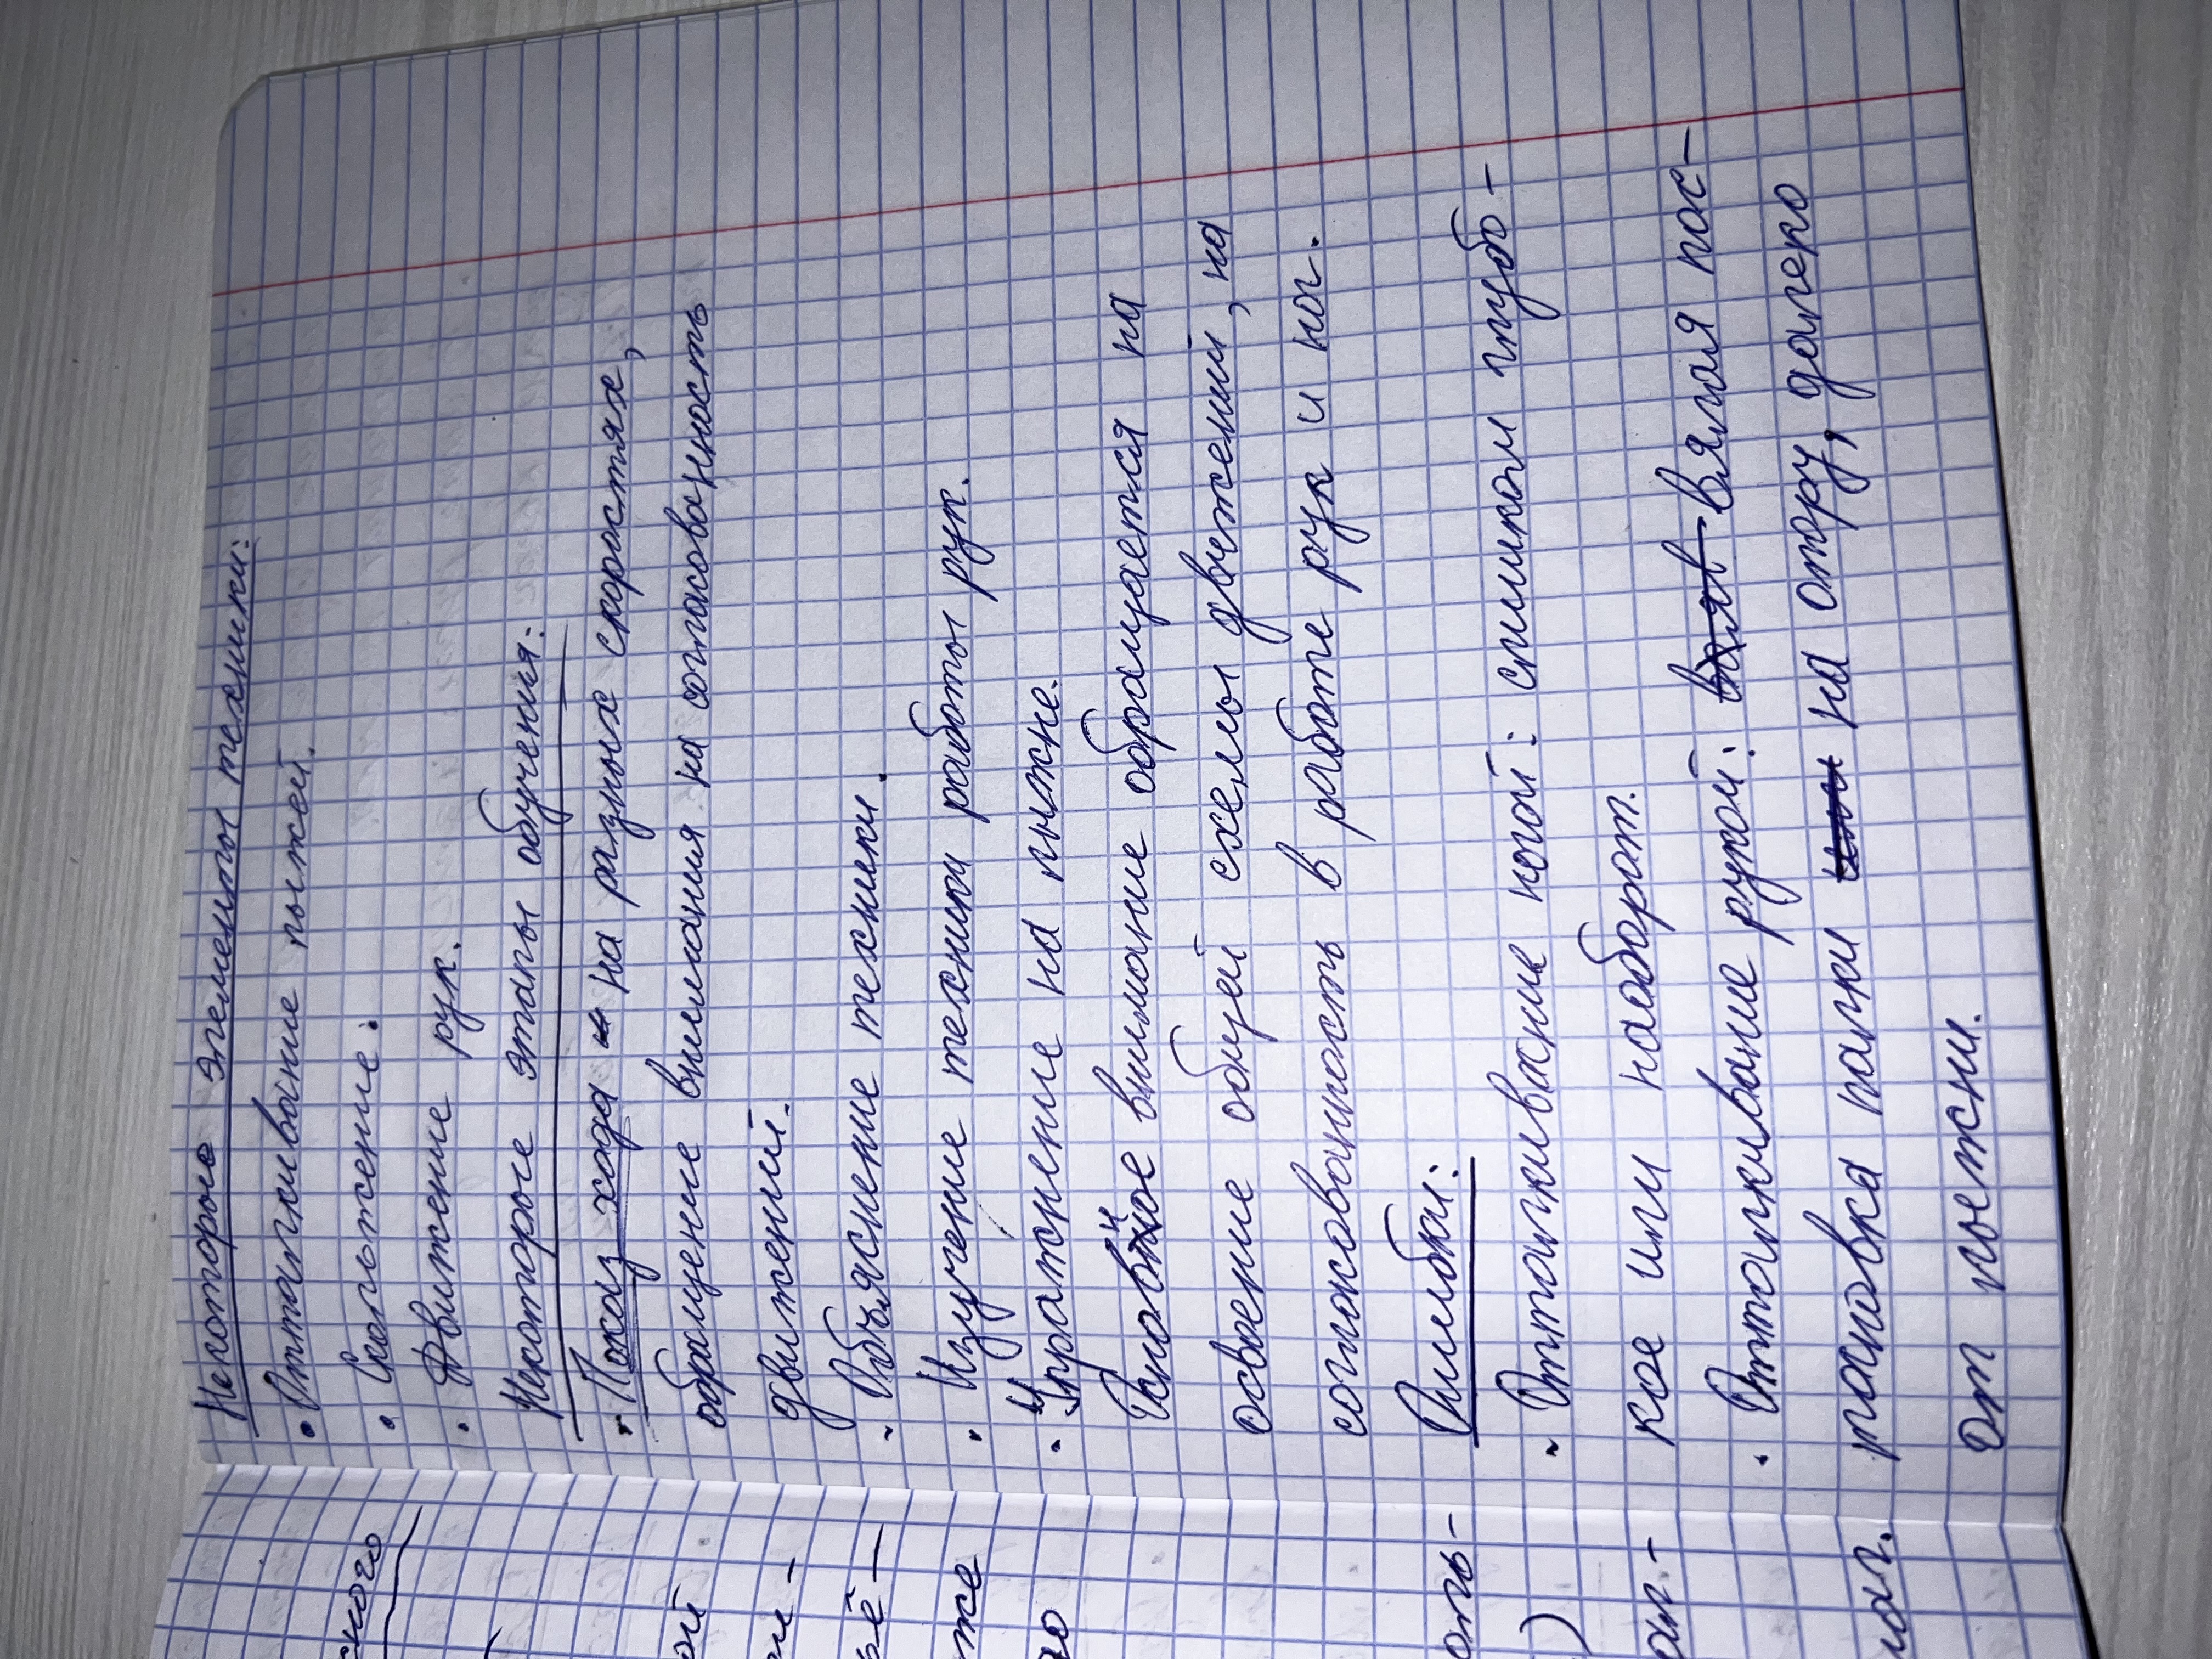 Некоторые элементы техники:
• Отталкивание лыжей.
• Скольжение.
• Движение рук.
Некоторые этапы обучения:
• Показ хода на разных скоростях,
обращение внимания на согласованность
движений.
• Объяснение техники.
• Изучение техники работы рук.
• Упражнение на лыжне.
Основное внимание обращается на
освоение общей схемы движений, на
согласованность в работе рук и ног.
Ошибки:
• Отталкивание ногой: слишком глубо-
кое или наоборот.
• Отталкивание рукой: вялая пос-
тановка палки на опору, далеко
от лыжни.
ского
ой
же